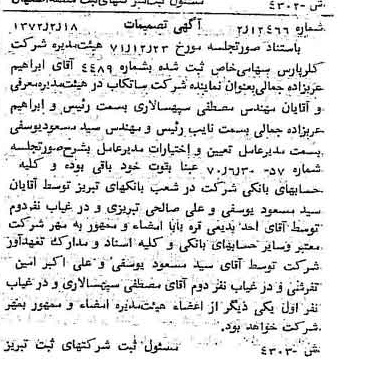 ش -۴۳۰۲ مسئول ثبت شرکتهای ثبت
شماره ۲/۱۲۴۶۶ آگهی تصمیمات ۱۳۷۲/۲/۱۸
باستناد صورتجلسه مورخ ۷۱/۱۲/۲۳ هیئت‌مدیره شرکت
کلرپارس سهامی‌خاص ثبت شده بشماره ۴۴۸۹ آقای ابراهیم
عربزاده جمالی‌بعنوان نماینده شرکت ساتکاب در هیئت‌مدیره‌معرفی
و آقایان مهندس مصطفی سپهسالاری بسمت رئیس و ابراهیم
عربزاده جمالی بسمت نایب رئیس و مهندس سید مسعودیوسفی
بسمت مدیرعامل تعیین و اختیارات مدیرعامل بشرح‌صورتجلسه
شماره ۵۷- ۷۰/۶/۳۰ عینا بقوت خود باقی بوده و کلیه
حسابهای بانکی شرکت در شعب بانکهای تبریز توسط آقایان
سید مسعود یوسفی و علی صالحی تبریزی و در غیاب نفردوم
توسط آقای احد بدیعی قره بابا امضاء و ممهور به مهر شرکت
معتبر وسایر حسابهای بانکی و کلیه اسناد و مدارک تعهدآور
شرکت توسط آقای سید مسعود یوسفی و علی اکبر امین
تفرشی و در غیاب نفر دوم آقای مصطفی سپهسالاری و در غیاب
نفر اول یکی دیگر از اعضاء هیئت‌مدیره امضاء و ممهور بمهر
شرکت خواهد بود.
ش -۴۳۰۲ مسئول ثبت شرکتهای ثبت تبریز